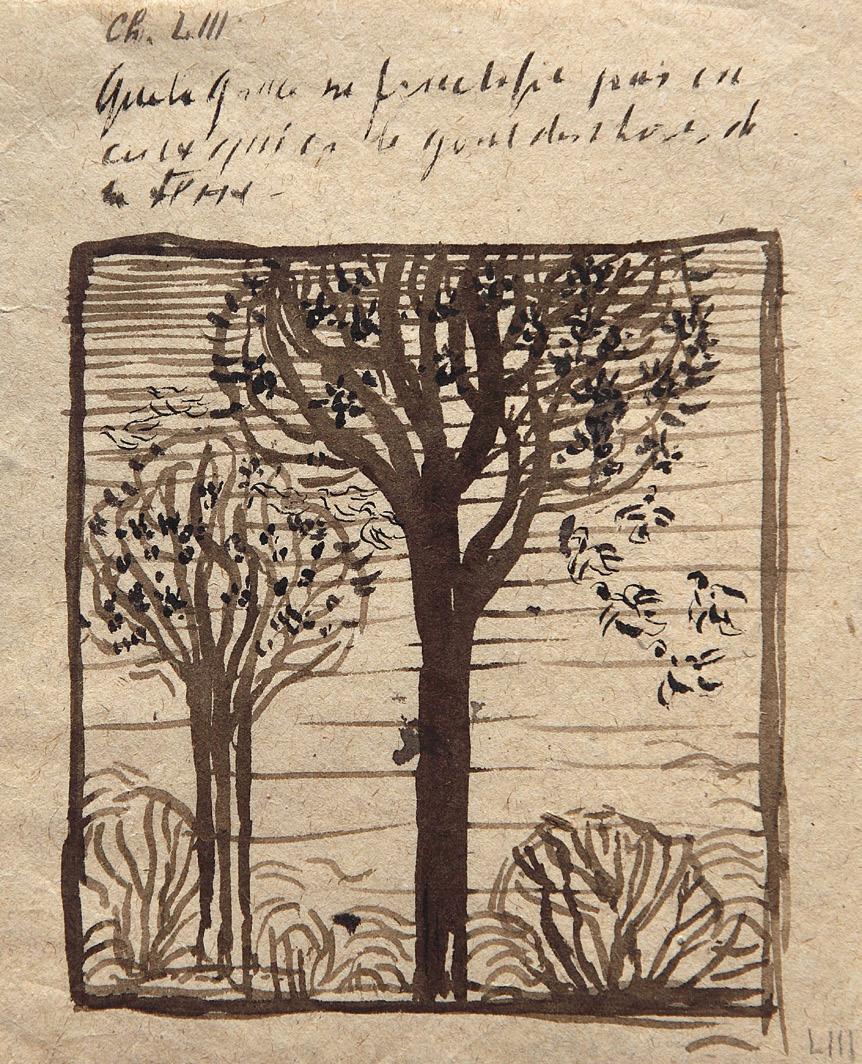 Ch. LIII
Que la Grace ne fructifie pas en
ceux qui on le gout des choses de
la terre -
LIII